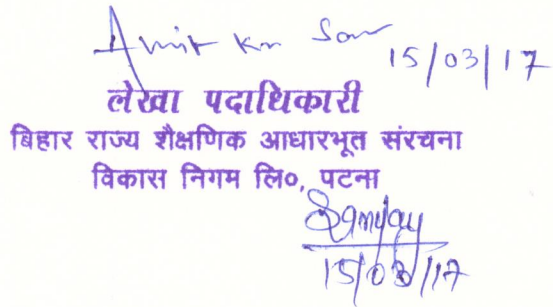 Amit Kr 15/03/17
लेखा पदाधिकारी
बिहार राज्य शैक्षणिक आधारभूत संरचना
विकास निगम लि०, पटना
Sanjay
15/03/17